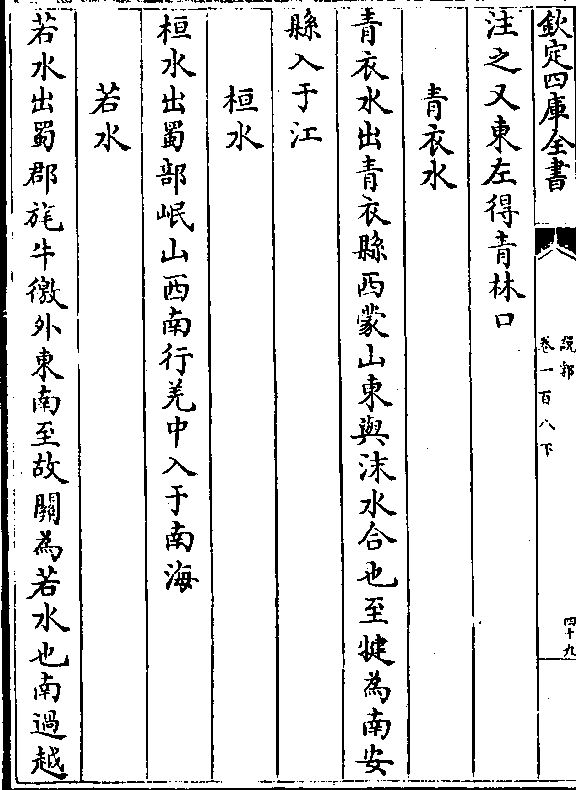 欽定四庫全書
說郛
卷一百八下
四十九
注之又東左得青林口
青衣水
青衣水出青衣縣西蒙山東與沫水合也至犍為南安
縣入于江
桓水
桓水出蜀部岷山西南行羌中入于南海
若水
若水出蜀郡旄牛徼外東南至故關為若水也南過越